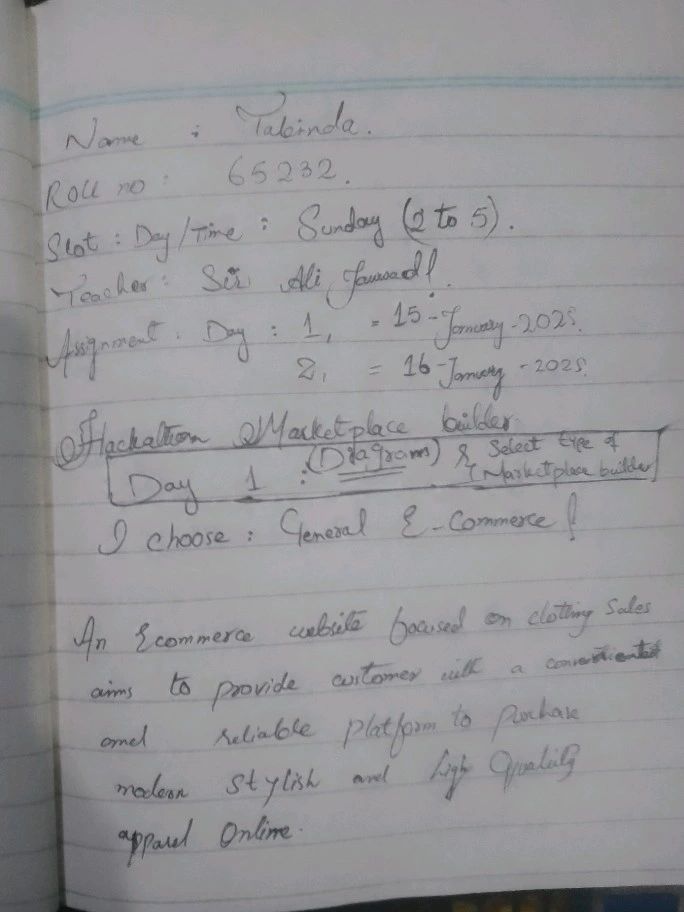 Name : Tabinda.
Roll no : 65232.
Slot : Day/Time : Sunday (2 to 5).
Teacher : Sir Ali Jawwad!.
Assignment : Day : 1, = 15-January-2025.
2, = 16-January-2025.
Hackathon Marketplace builder.
Day 1 : (Diagram) & Select type of
(Marketplace builder)
I choose : General E-Commerce!
An Ecommerce website focused on clothing Sales
aims to provide customer with a
and reliable platform to Purchase
modern stylish and high Quality
apparel Online.